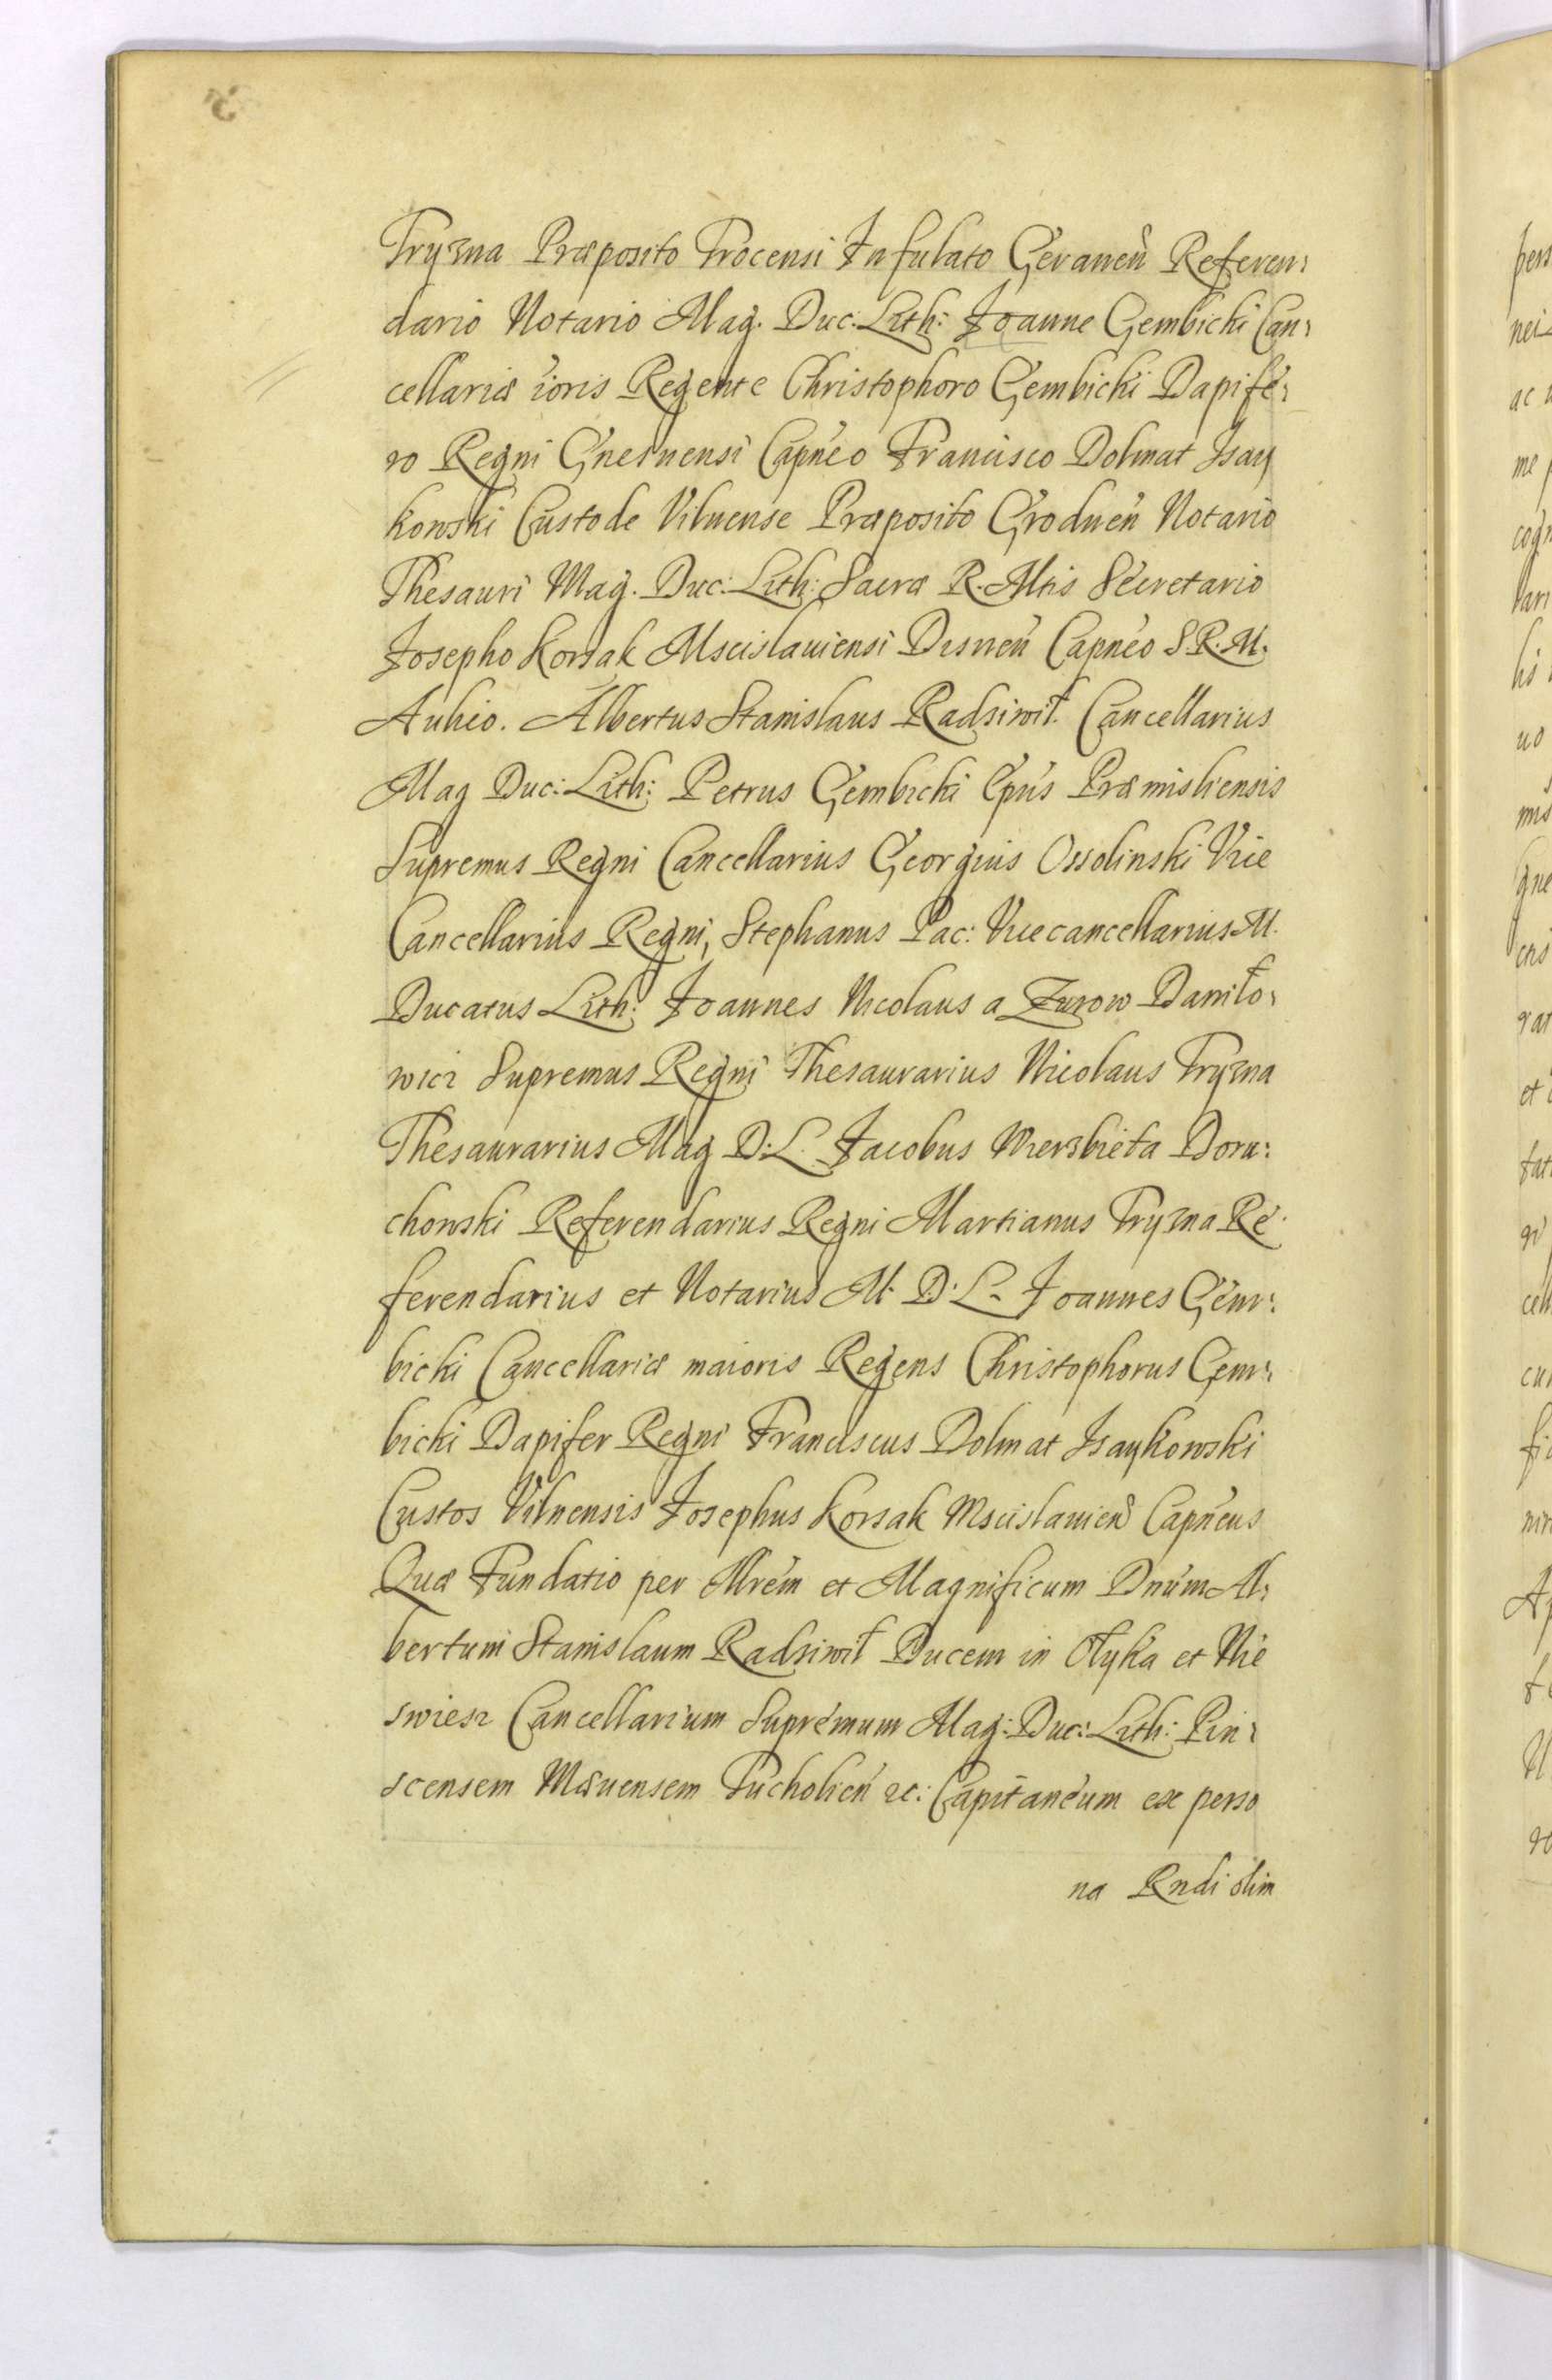 Tryzna Præposito Trocensi Infulato Geranen̄ Referen:
dario Notario Mag. Duc: Lith: Joanne Gembicki Can:
cellariæ ioris Regente Christophoro Gembicki Dapife:
ro Regni Gnesnensi Capnéo Francisco Dolmat Isay
kowski Custode Vilnense Præposito Grodnen̄ Notario
Thesauri Mag. Duc: Lith: Sacræ R. Mtis Secretario
Josepho Korsak Mscislauiensi Disnen̄ Capnéo S.R.M.
Aulico. Albertus Stanislaus Radziwił. Cancellarius
Mag Duc: Lith: Petrus Gembicki Epús Præmisliensis
Supremus Regni Cancellarius Georgius Ossolinski Vice
Cancellarius Regni, Stephanus Pac: Vicecancellarius M.
Ducatus Lith: Joannes Nicolaus a Zurow Daniło:
wicz Supremus Regni Thesaurarius Nicolaus Tryzna
Thesaurarius Mag D: L. Jacobus Wierzbieta Doru:
chowski Referendarius Regni Martianus Tryzna Re:
ferendarius et Notarius M. D. L. Joannes Gem:
bicki Cancellariæ maioris Regens Christophorus Gem:
bicki Dapifer Regni Franciscus Dolmat Isaykowski
Custos Vilnensis Josephus Korsak Mscislauien̄ Capnéus
Quæ Fundatio per Illrém et Magnificum Dnúm Al:
bertum Stanislaum Radziwił Ducem in Ołyka et Nie
swiesz Cancellarium Supremum Mag: Duc: Lith: Pin:
scensem Mævensem Tucholien̄ &c: Capitanéum ex perso
na Rndi olim